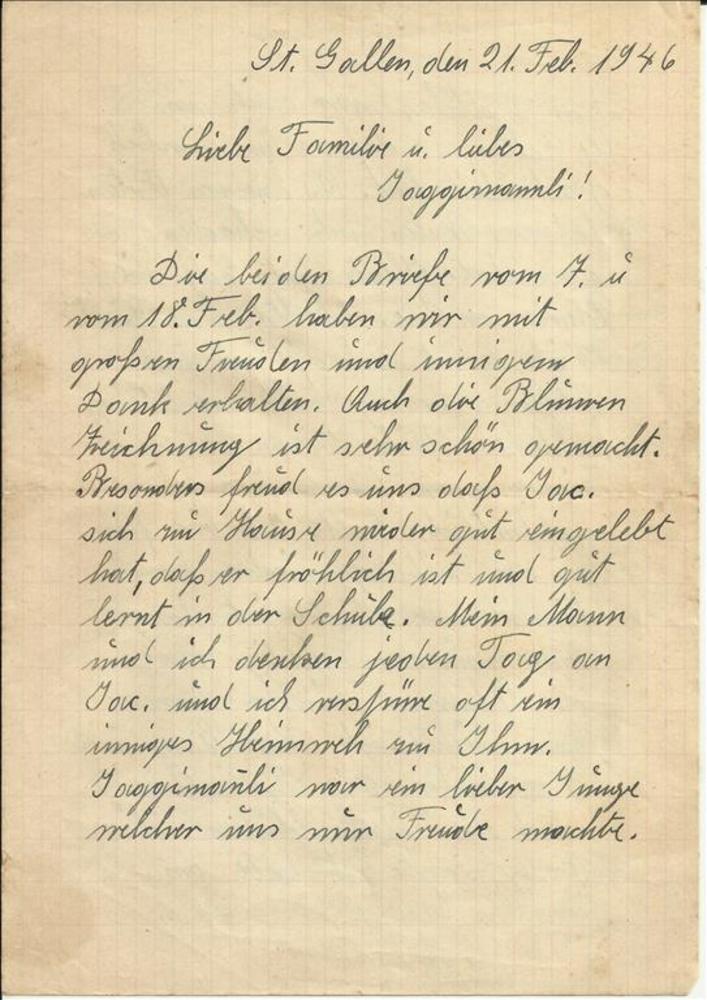 St. Gallen, den 21. Feb. 1946
Liebe Familie u. liebes
Jaggimannli!
Die beiden Briefe vom 7. u
vom 18. Feb. haben wir mit
großen Freuden und innigem
Dank erhalten. Auch die Blumen
Zeichnung ist sehr schön gemacht.
Besonders freud es uns daß Jac.
sich zu Hause wieder gut eingelebt
hat, daß er fröhlich ist und gut
lernt in der Schule. Mein Mann
und ich denken jeden Tag an
Jac. und ich verspüre oft ein
inniges Heimweh zu Ihm.
Jaggimañli war ein lieber Junge
welcher uns nur Freude machte.